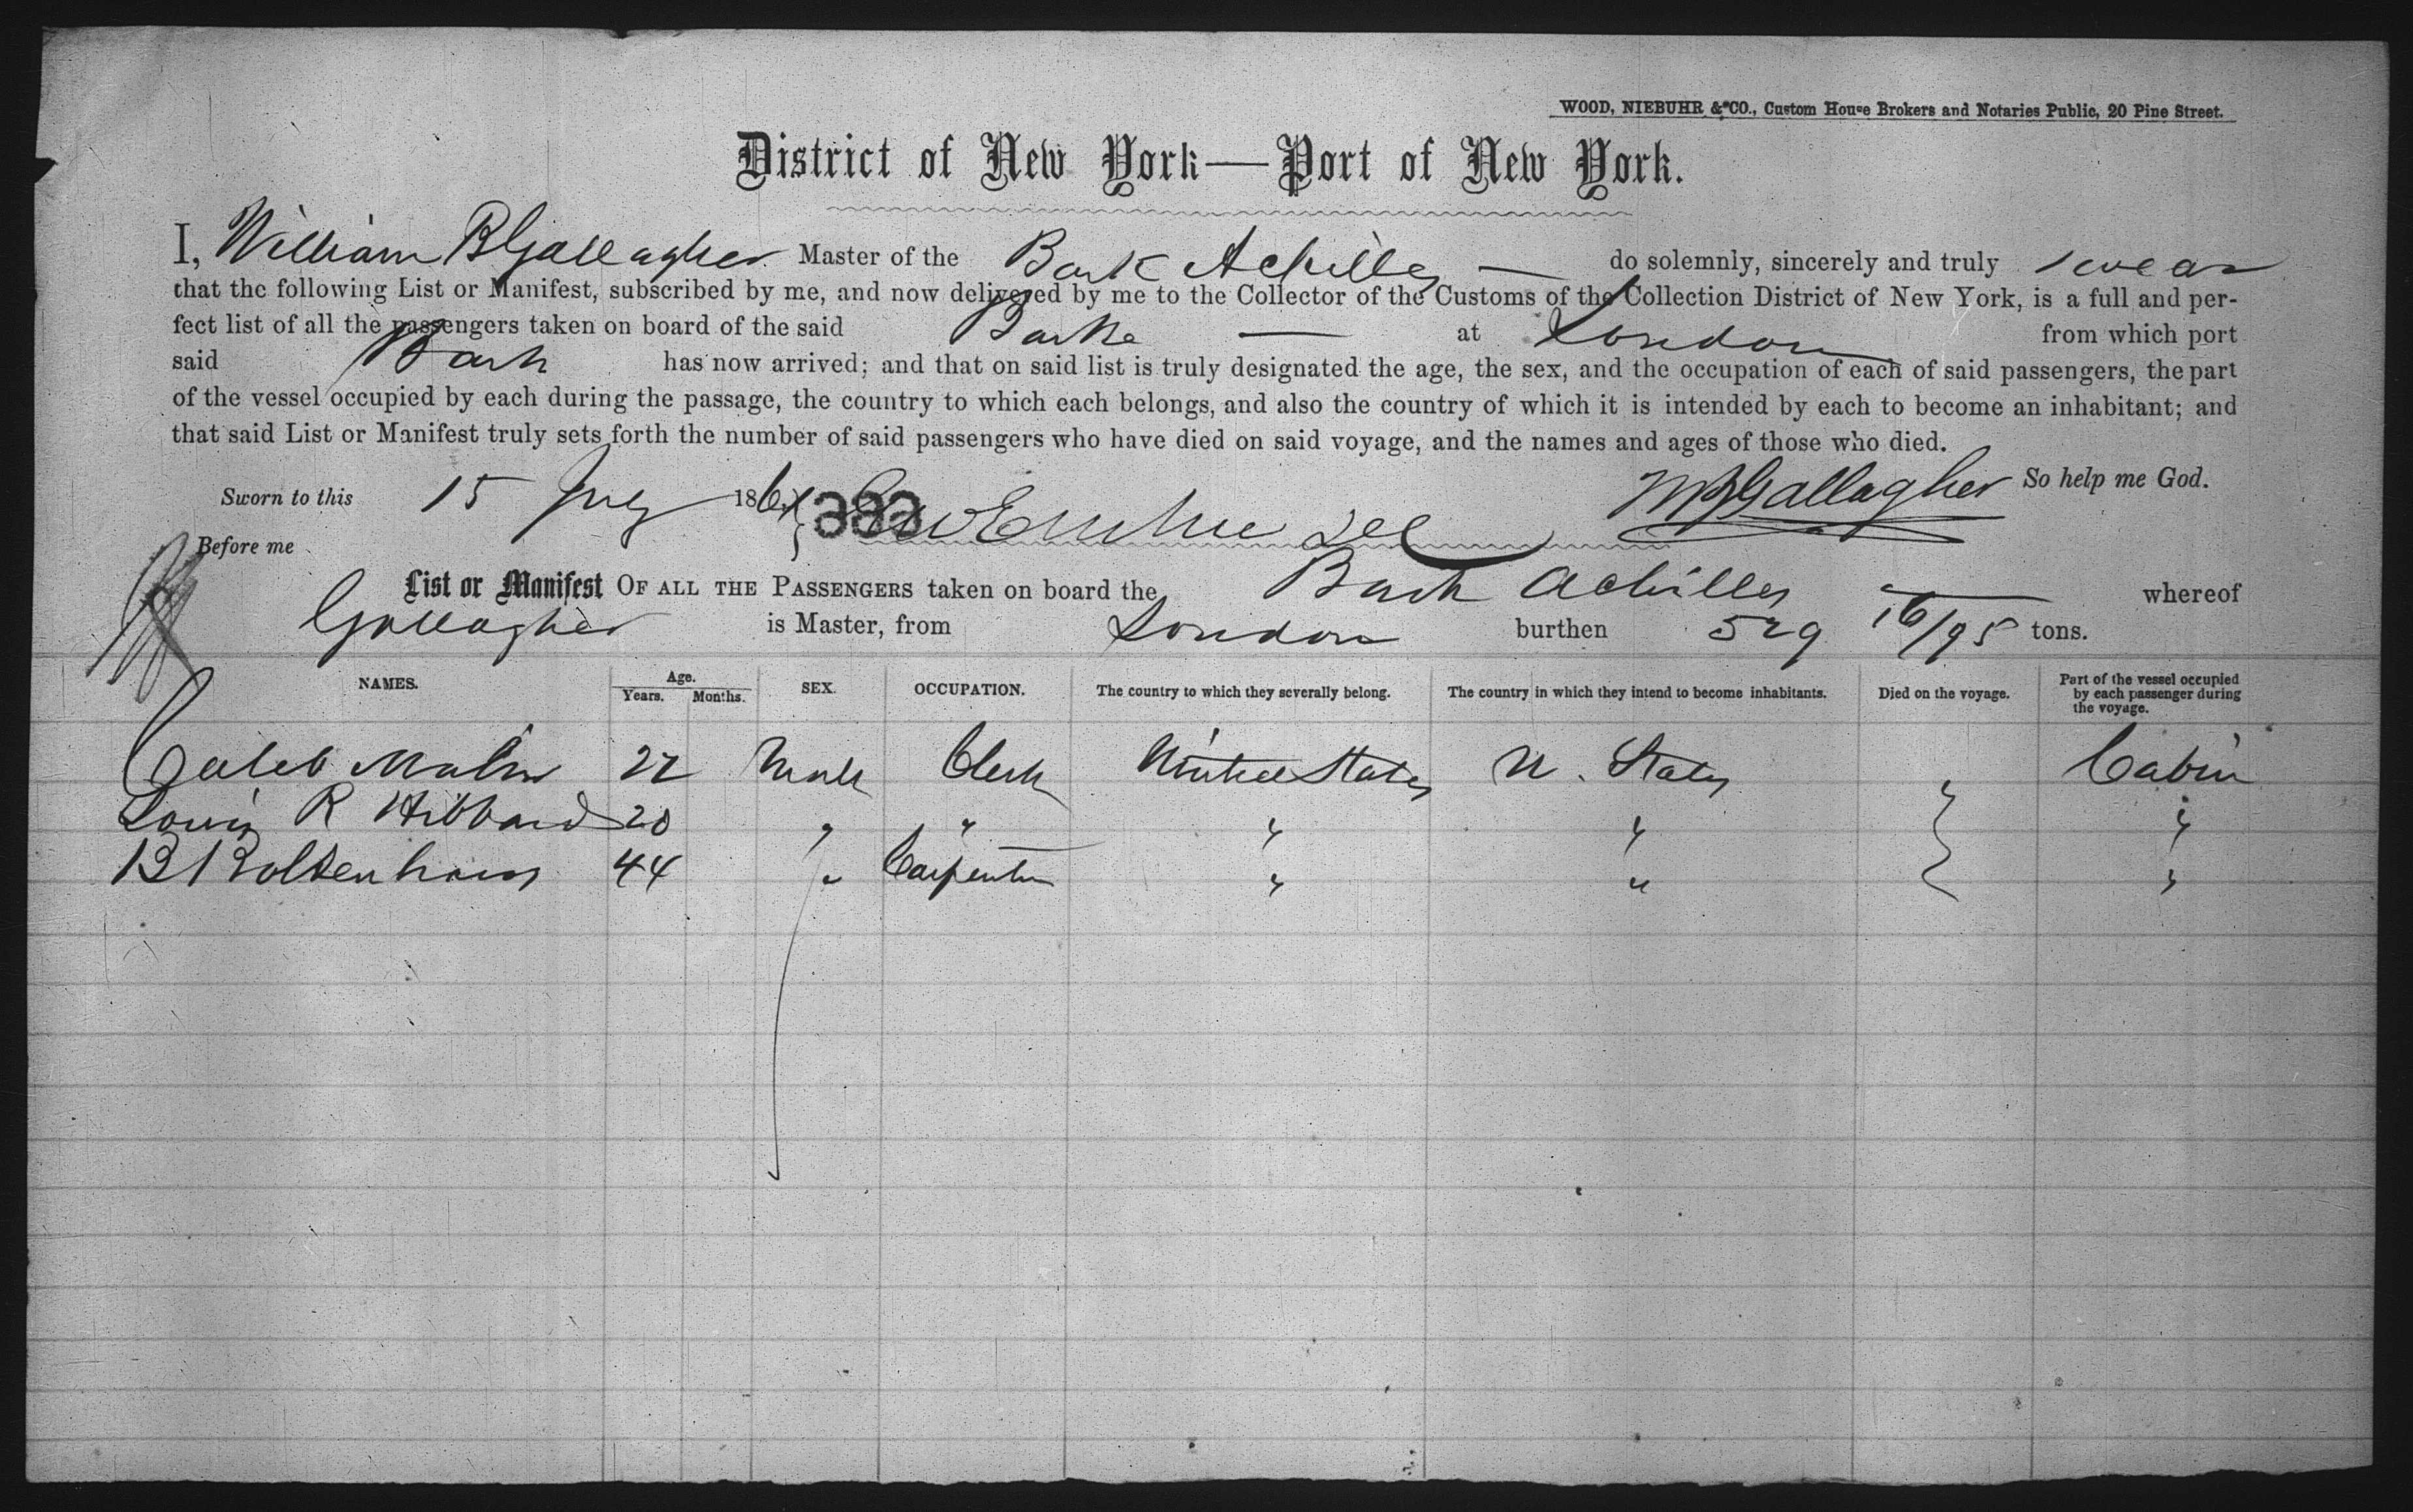 WOOD, NIEBUHR & CO., Custom House Brokers and Notaries Public, 20 Pine Street.
District of New York—Port of New York.
I, William B Gallagher Master of the Bark Achilles — do solemnly, sincerely and truly swear
that the following List or Manifest, subscribed by me, and now delivered by me to the Collector of the Customs of the Collection District of New York, is a full and per-
fect list of all the passengers taken on board of the said Barke — at London from which port
said Bark has now arrived; and that on said list is truly designated the age, the sex, and the occupation of each of said passengers, the part
of the vessel occupied by each during the passage, the country to which each belongs, and also the country of which it is intended by each to become an inhabitant; and
that said List or Manifest truly sets forth the number of said passengers who have died on said voyage, and the names and ages of those who died.
Sworn to this 15 July 186 WB Gallagher So help me God.
Before me
List or Manifest OF ALL THE PASSENGERS taken on board the Bark Achilles — whereof
Gallagher is Master, from London burthen 529 16/95 tons.
NAMES. Age. Years. Months. SEX. OCCUPATION. The country to which they severally belong. The country in which they intend to become inhabitants. Died on the voyage. Part of the vessel occupied by each passenger during the voyage.
Caleb 22 Male Clerk United States U. States Cabin
Louis R Hibbard 20 " " " " "
B 44 " Carpenter " " "